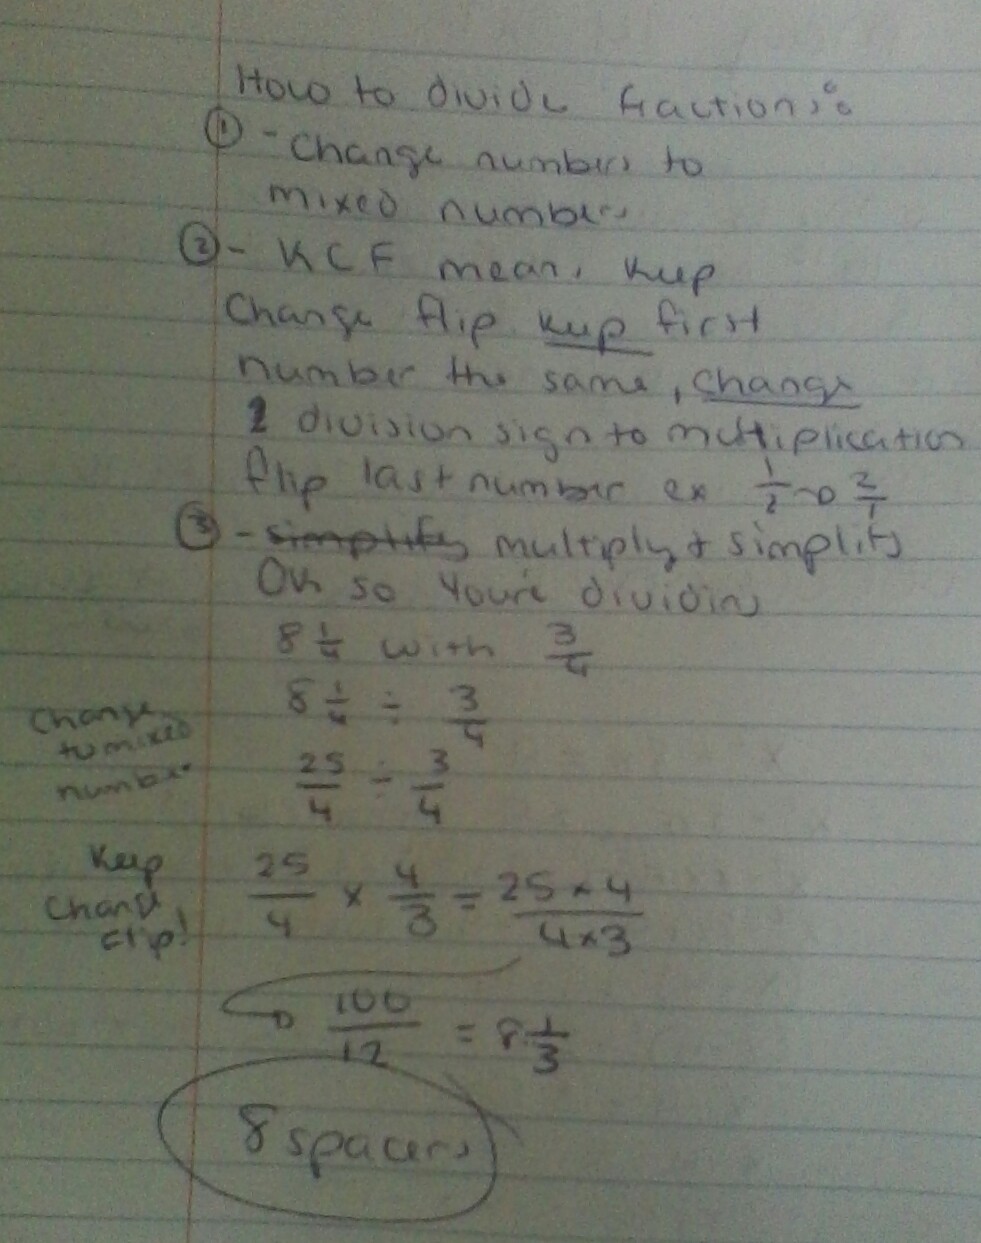 How to divide fractions:
① - Change numbers to
mixed numbers
② - KCF means Keep
Change flip Keep first
number the same, change
division sign to multiplication
flip last number ex 1/2 → 2/1
③ - simplify multiply + simplify
Ok so you're dividing
8 1/4 with 3/4
8 1/4 ÷ 3/4
Change
to mixed
number
25/4 ÷ 3/4
Keep
Change
flip!
25/4 × 4/3 = 25×4/4×3
→ 100/12 = 8 1/3
8 spacers